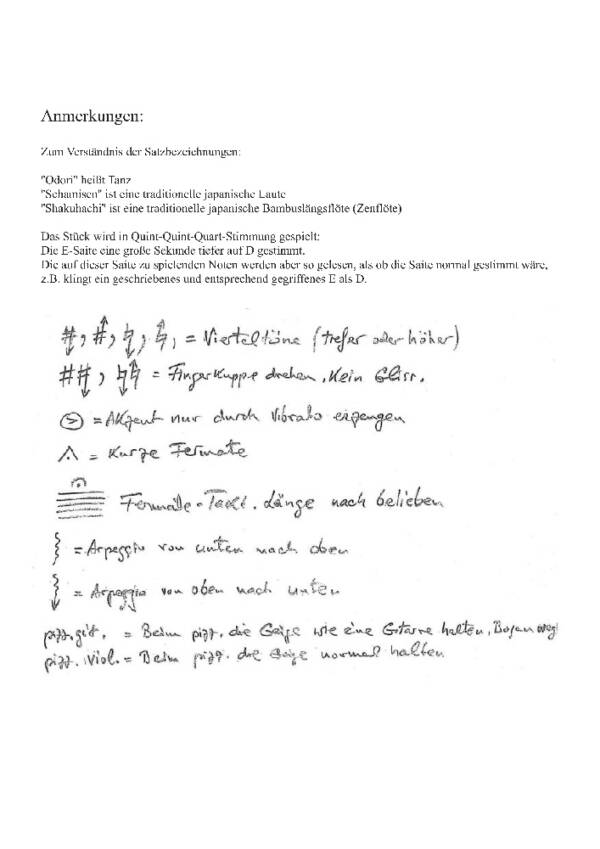 Anmerkungen:
Zum Verständnis der Satzbezeichnungen:
"Odori" heißt Tanz
"Schamisen" ist eine traditionelle japanische Laute
"Shakuhachi" ist eine traditionelle japanische Bambuslängsflöte (Zenflöte)
Das Stück wird in Quint-Quint-Quart-Stimmung gespielt:
Die E-Saite eine große Sekunde tiefer auf D gestimmt.
Die auf dieser Saite zu spielenden Noten werden aber so gelesen, als ob die Saite normal gestimmt wäre,
z.B. klingt ein geschriebenes und entsprechend gegriffenes E als D.
= Vierteltöne (tiefer oder höher)
= Fingerkuppe drehen. Kein Gliss.
= Akzent nur durch Vibrato erzeugen
= Kurze Fermate
Fermate-Takt. Länge nach belieben
= Arpeggio von unten nach oben
= Arpeggio von oben nach unten
pizz. git. = Beim pizz. die Geige wie eine Gitarre halten, Bogen weg!
pizz. Viol. = Beim pizz. die Geige normal halten